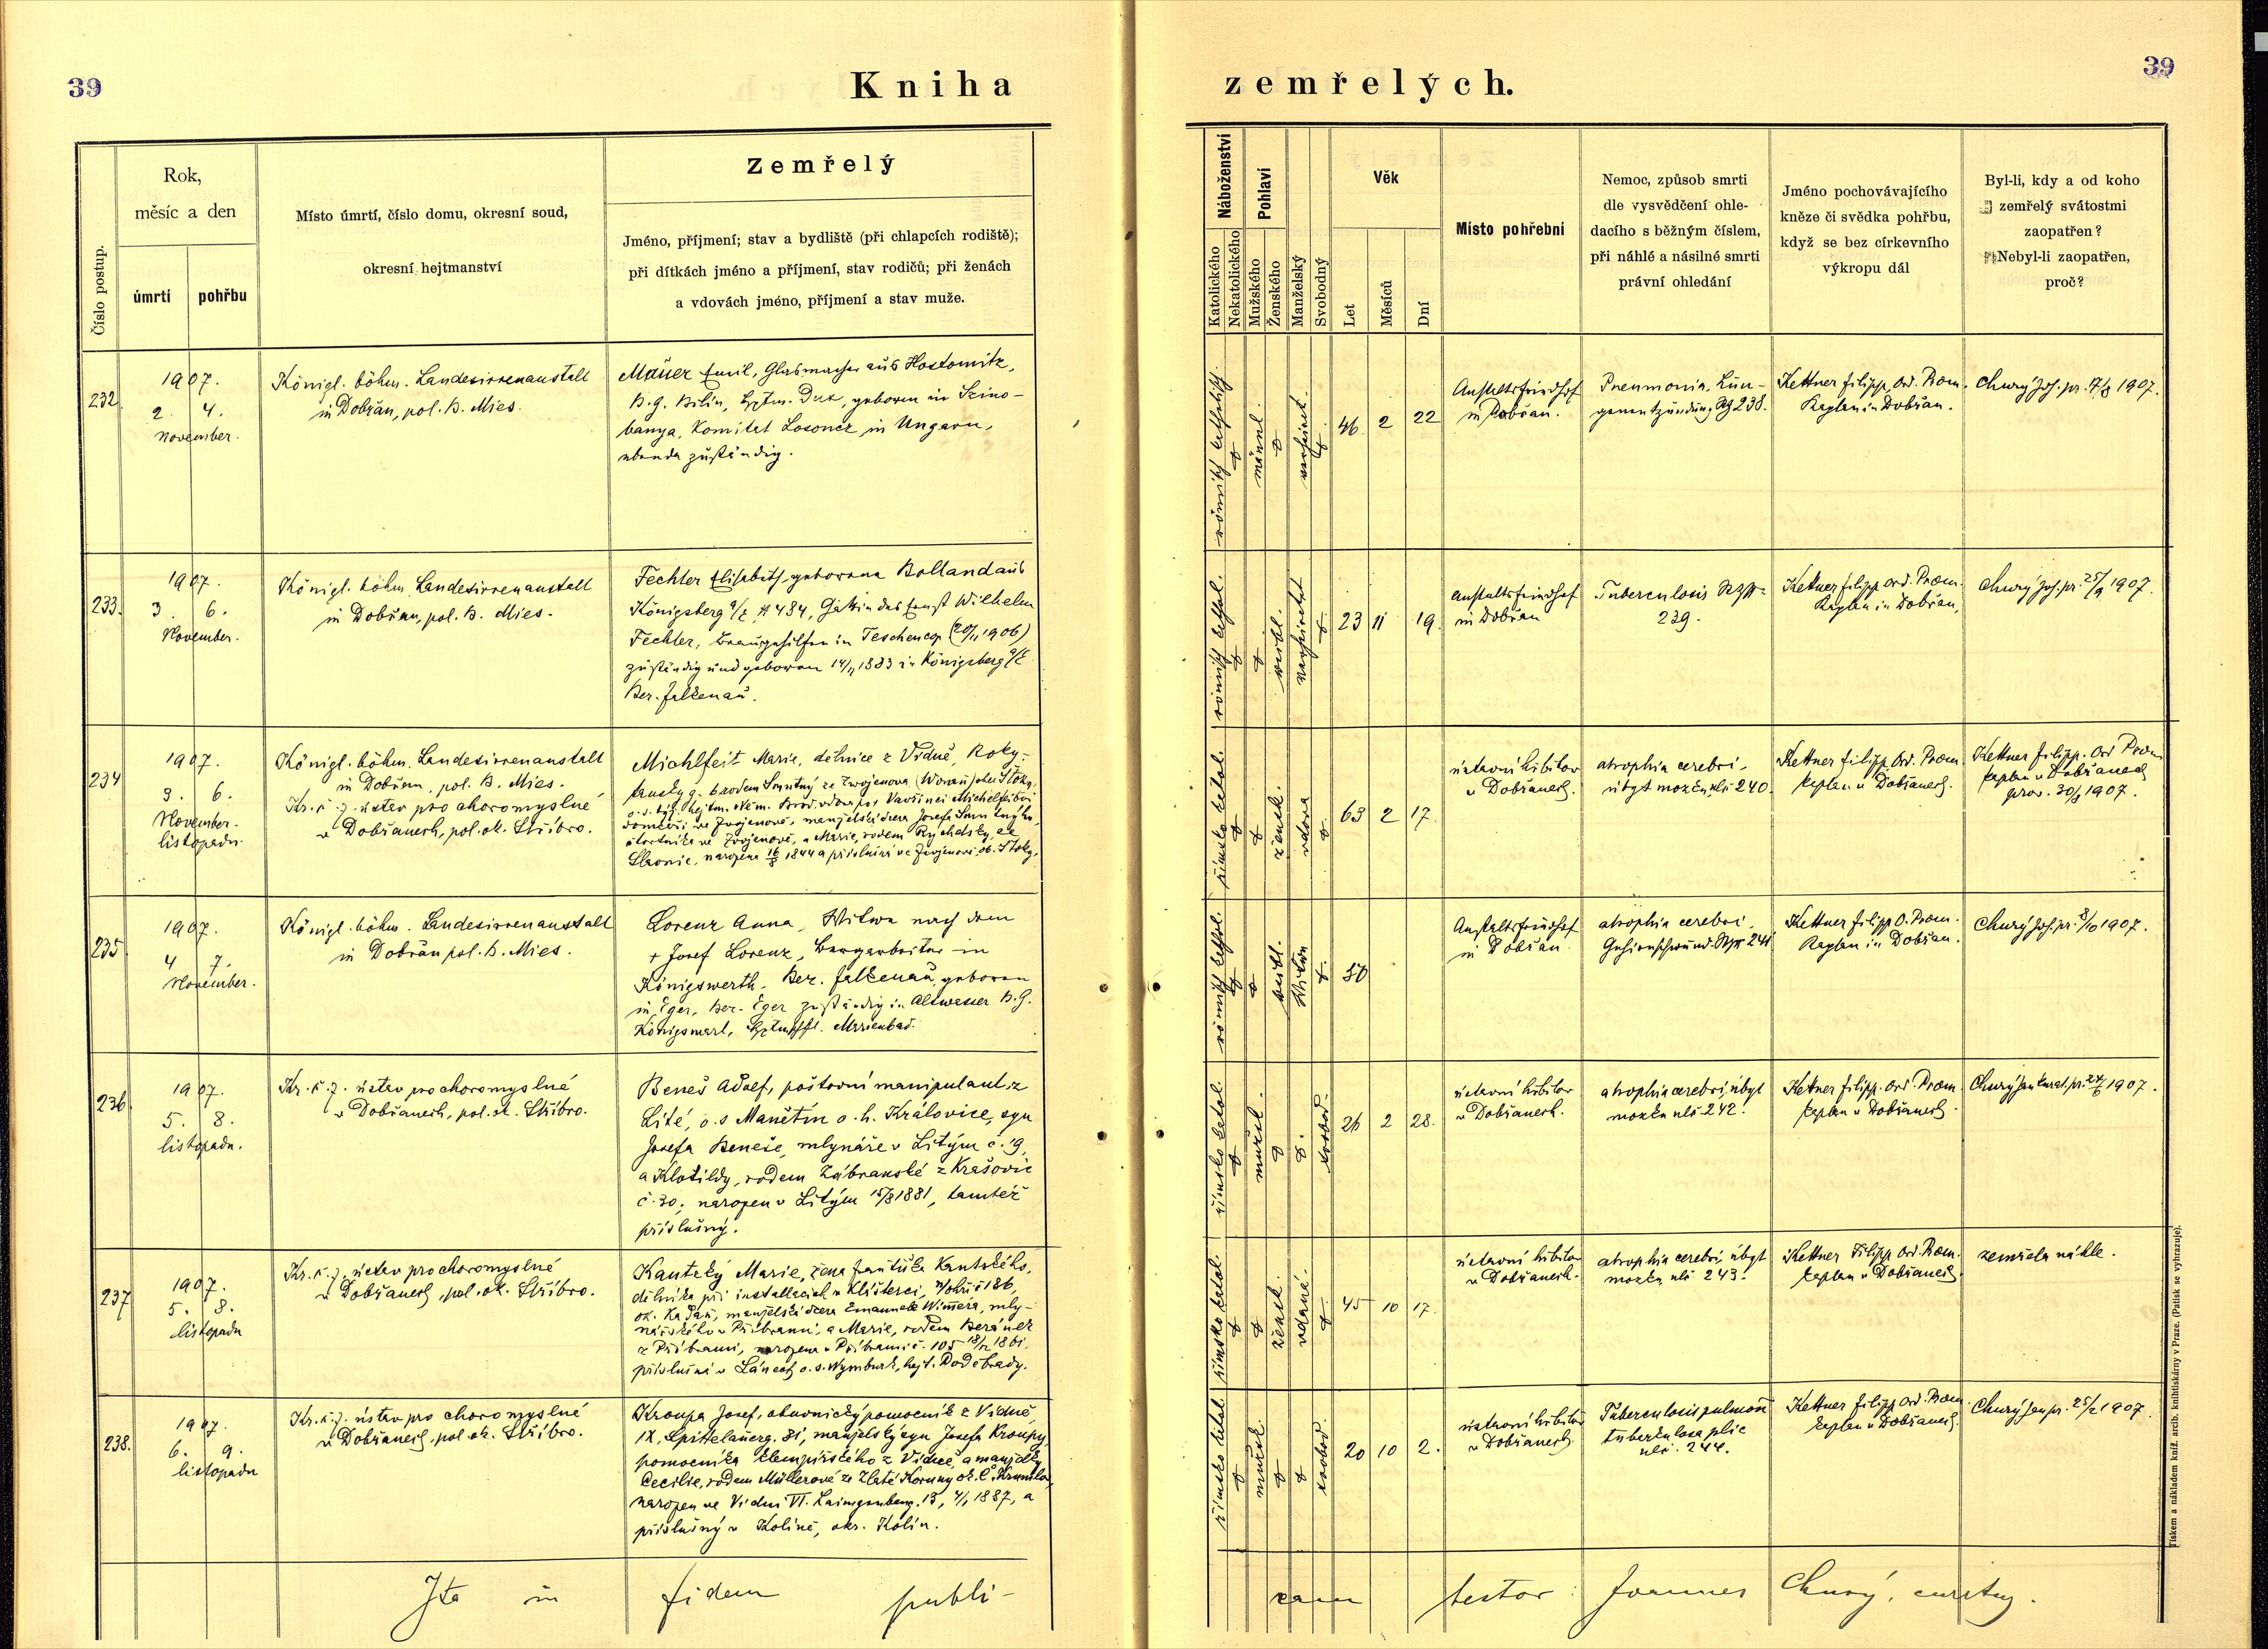 39
Kniha
zemřelých.
39
Číslo postup.
Rok,
měsíc a den
úmrtí
pohřbu
Místo úmrtí, číslo domu, okresní soud,
okresní hejtmanství
Zemřelý
Jméno, příjmení; stav a bydliště (při chlapcích rodiště);
při dítkách jméno a příjmení, stav rodičů; při ženách
a vdovách jméno, příjmení a stav muže.
Náboženství
Katolického
Nekatolického
Pohlaví
Mužského
Ženského
Manželský
Svobodný
Věk
Let
Měsíců
Dní
Místo pohřební
Nemoc, způsob smrti
dle vysvědčení ohle-
dacího s běžným číslem,
při náhlé a násilné smrti
právní ohledání
Jméno pochovávajícího
kněze či svědka pohřbu,
když se bez církevního
výkropu dál
Byl-li, kdy a od koho
zemřelý svátostmi
zaopatřen?
Nebyl-li zaopatřen,
proč?
232
1907.
2. 4.
November.
Königl. böhm. Landesirrenanstalt
in Dobřan, pol. B. Mies.
Mauer Emil, Glasmacher aus Hostomitz,
B. g. Bilin, Hptm. Dux, geboren in Szino-
banya, Komitat Losoncz in Ungarn,
ebenda zuständig.
römisch katholisch.
männl.
verheirat.
46 2 22
Anstaltsfriedhof
in Dobřan.
Pneumonia, Lun-
genentzündung 238.
Kettner Filipp, Ord. Præm.
Kaplan in Dobřan.
Churý Joh. pr. 17/8 1907.
233.
1907.
3. 6.
November.
Königl. böhm. Landesirrenanstalt
in Dobřan, pol. B. Mies.
Fechter Elisabeth, geborene Bolland aus
Königsberg a/E # 484, Gattin des Ernst Wilhelm
Fechter, Braugehilfen in Teschen (20/11 1906)
zuständig und geboren 14/11 1883 in Königsberg a/E
Ber. Falkenau.
römisch kathol.
weibl.
verheiratet
23 11 19.
Anstaltsfriedhof
in Dobřan
Tuberculosis
239.
Kettner Filipp ord. Præm.
Kaplan in Dobřan,
Churý Joh. pr. 25/9 1907.
234
1907.
3. 6.
November.
listopadu.
Königl. böhm. Landesirrenanstalt
in Dobřan, pol. B. Mies.
Kr. č. z. ústav pro choromyslné
v Dobřanech, pol. ok. Stříbro.
Michlfeit Marie, dělnice z Vídně, Roky-
rodem Smutný ze Zvojenova
hejtm. Něm. Brod, vdova po † Vavřinci Michelfeitovi
domkáři ve Zvojenově, manželská dcera Josefa Smutnýho,
ve Zvojenově, a Marie, rodem Rychetský, ze
narozena 16/8 1844 a příslušná ve Zvojenově, ob. Stoky.
římsko katol.
žensk.
vdova
63 2 17.
ústavní hřbitov
v Dobřanech.
atrophia cerebri-
úbyt mozku, 240.
Kettner Filipp Ord. Præm.
kaplan v Dobřanech.
Kettner Filipp. Ord Præm
kaplan v Dobřanech
prov. 30/8 1907.
235
1907.
4 7.
November.
Königl. böhm. Landesirrenanstalt
in Dobřan pol. B. Mies.
Lorenz Anna, Witwe nach dem
† Josef Lorenz, Bergarbeiter in
Königswerth, Ber. Falkenau, geboren
in Eger, Ber. Eger zuständig in Altwasser B. G.
Königswart, Marienbad.
römisch kathol.
weibl.
Witwe
50
Anstaltsfriedhof
in Dobřan.
atrophia cerebri
Gehirnschwund 241
Kettner Filipp O. Præm.
Kaplan in Dobřan.
Churý Joh. pr. 8/10 1907.
236
1907.
5. 8.
listopadu.
Kr. č. z. ústav pro choromyslné
v Dobřanech, pol. ok. Stříbro.
Beneš Adolf, poštovní manipulant z
Lité, o. s Manětín o. h. Kralovice, syn
Josefa Beneše, mlynáře v Litým č. 19,
a Klotildy, rodem Zábranské z Krašovic
č. 30; narozen v Litým 15/8 1881, tamtéž
příslušný.
římsko katol.
mužsk.
svobod.
26 2 28.
ústavní hřbitov
v Dobřanech.
atrophia cerebri, úbyt
mozku 242.
Kettner Filipp. Ord. Præm
kaplan v Dobřanech.
1907.
237
1907.
5. 8.
listopadu
Kr. č. z. ústav pro choromyslné
v Dobřanech, pol. ok. Stříbro.
Kautský Marie, žena Kautského,
dělníka při installacích v Klášterci n/Ohří č 186,
ok. Kadaň, manželská dcera Emanuele Wimmera, mly-
nářského v Příbrami, a Marie, rodem Beránek
z Příbrami, narozena v Příbrami č. 105 18/12 1861,
příslušná v Láneck o. s. Nymburk, hejt. Poděbrady.
římsko katol.
žensk.
vdaná.
45 10 17.
ústavní hřbitov
v Dobřanech.
atrophia cerebri, úbyt
mozku 243.
Kettner Filipp Ord. Præm.
kaplan v Dobřanech
zemřela náhle.
238.
1907.
6. 9.
listopadu
Kr. č. z. ústav pro choromyslné
v Dobřanech, pol. ok. Stříbro.
Kroupa Josef, obuvnický pomocník z Vídně,
IX, Spittelauerg. 81, manželský syn Josefa Kroupy,
pomocníka klempířského z Vídně, a manželky
Cecilie, rodem Müllerové ze Zlaté Koruny ok. Č. Krumlov,
narozen ve Vídni VI. 13, 4/1 1887, a
příslušný v Kolíně, okr. Kolín.
římsko katol.
mužsk.
svobod.
20 10 2.
ústavní hřbitov
v Dobřanech.
Tuberculosis pulmon
tuberkulosa plic
244.
Kettner Filipp Ord. Præm.
kaplan v Dobřanech.
Churý Jan pr. 25/2 1907.
Ita in fidem publi-
cam testor: Joannes Churý, curatus.
Tiskem a nákladem kníž. arcib. knihtiskárny v Praze. (Patisk se vyhrazuje).